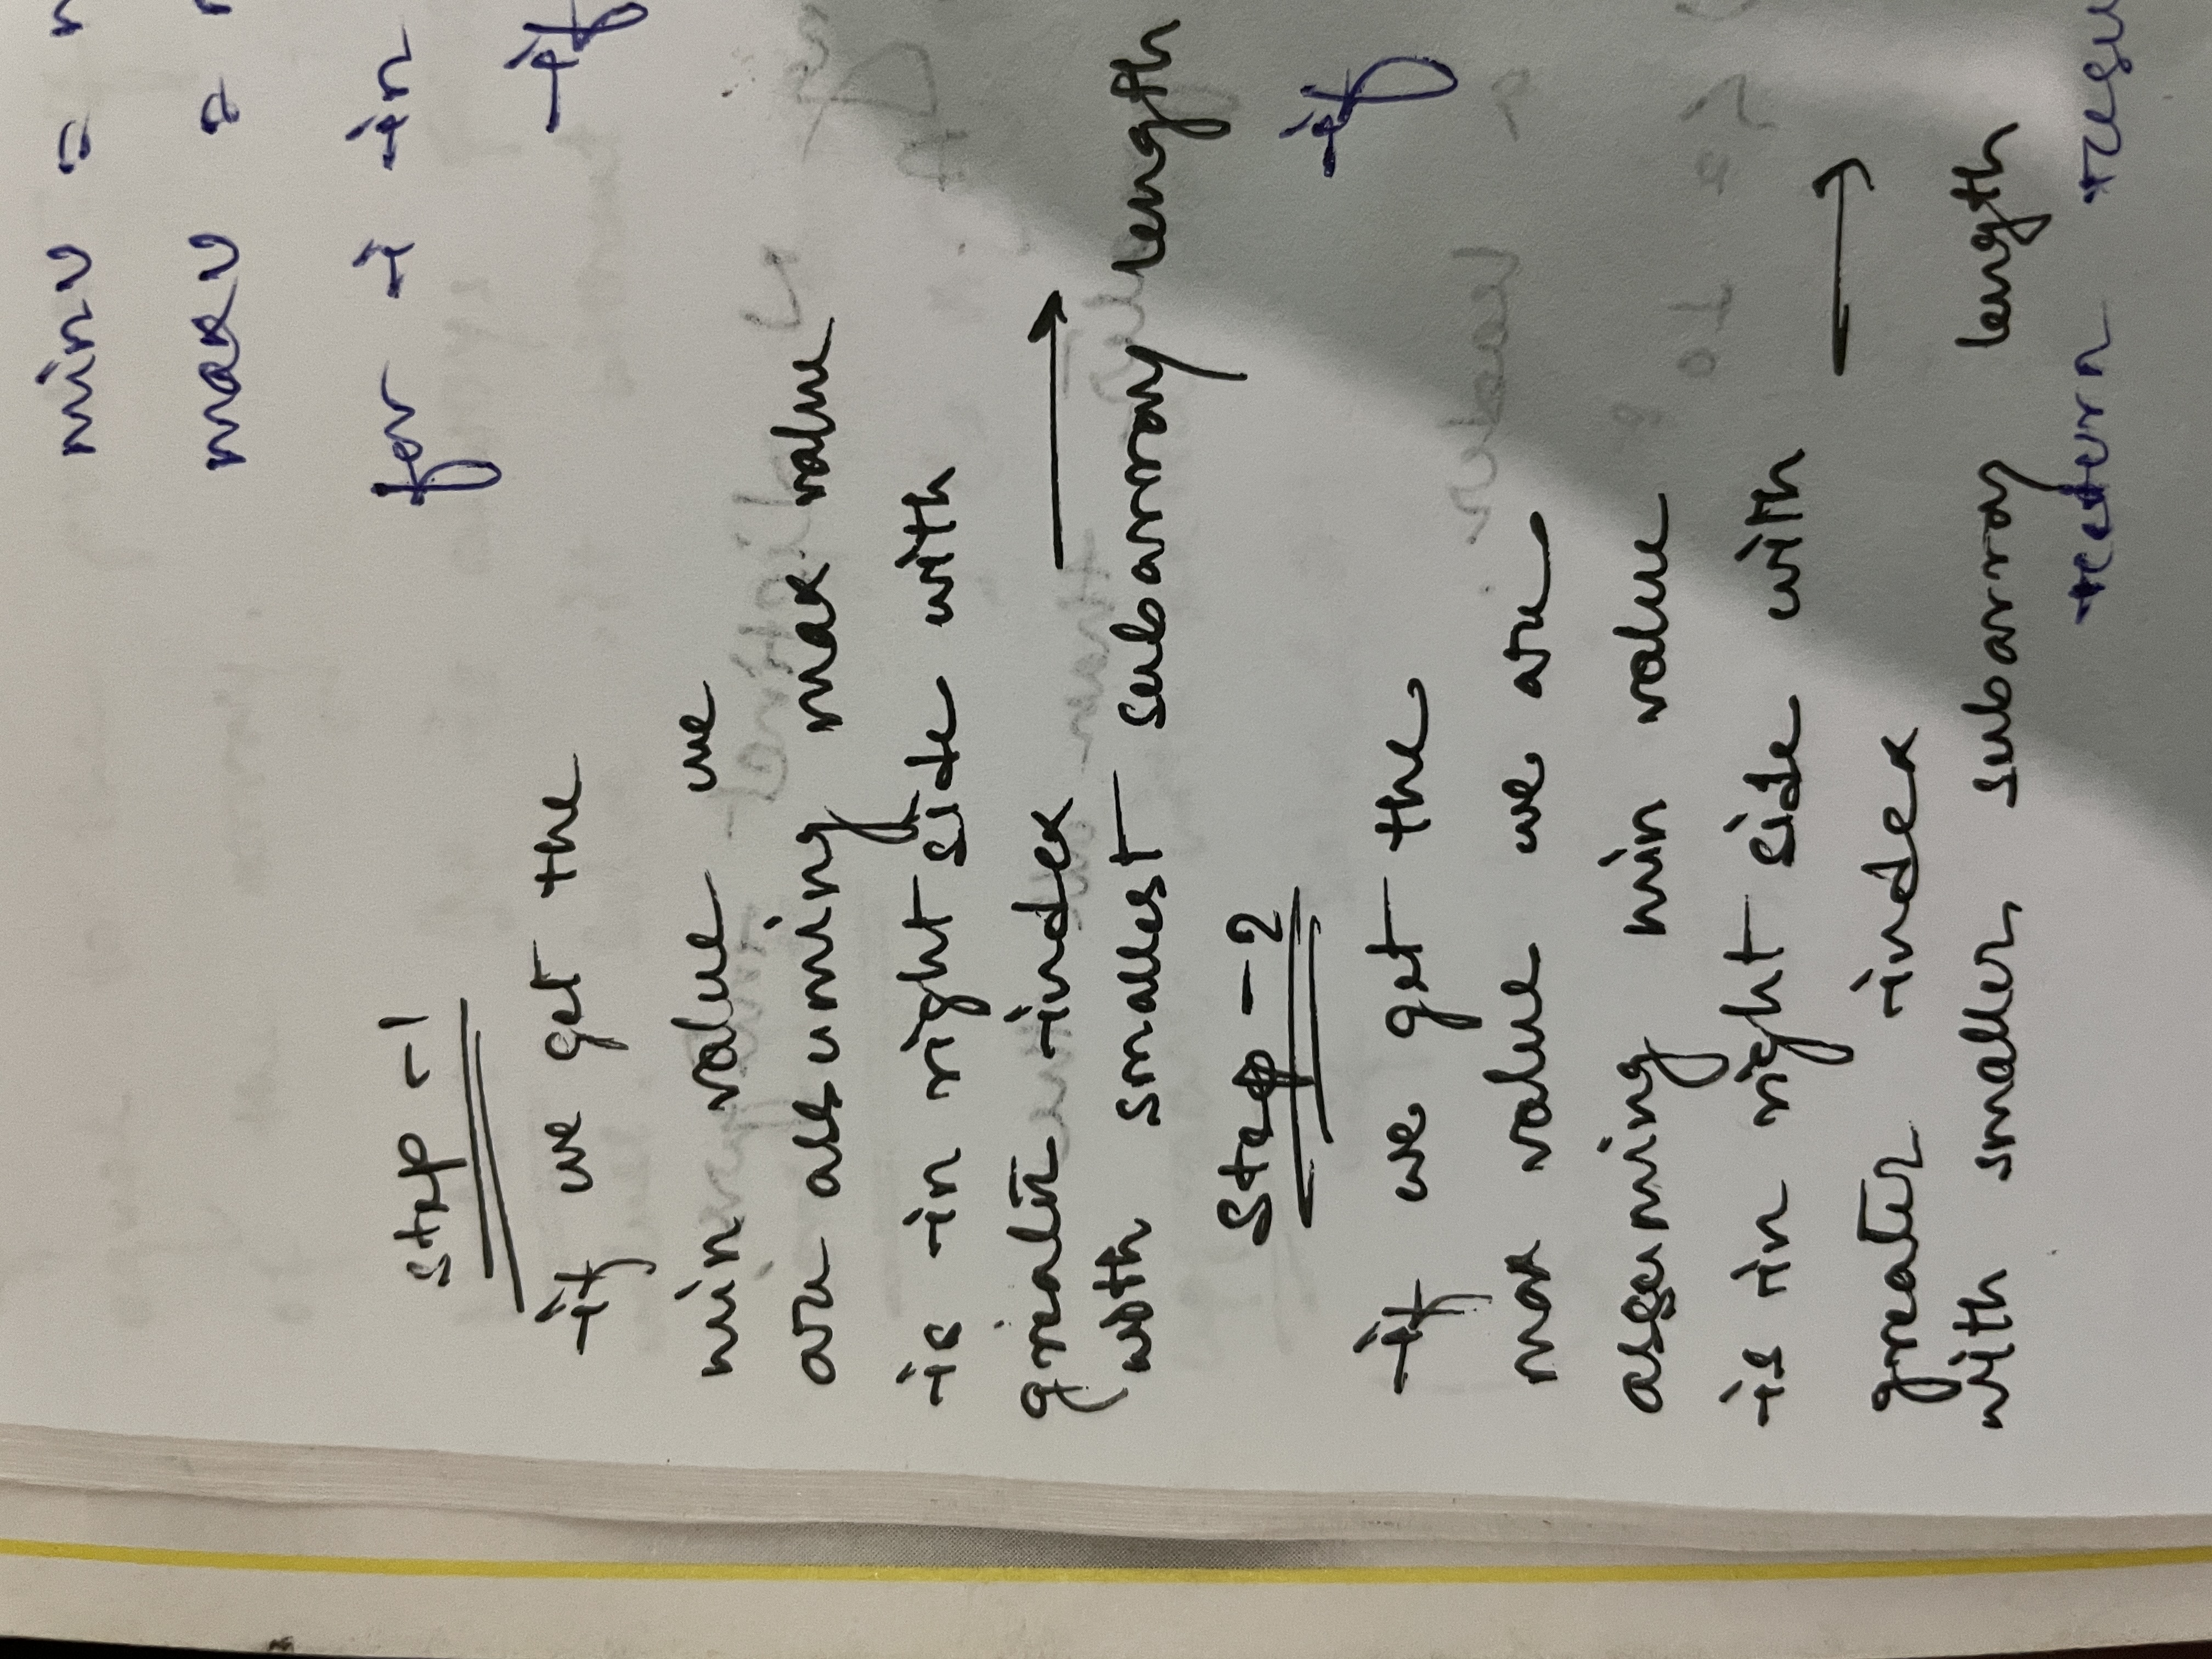 minv =
maxv =
step -1
for i in
if we get the
if
min value we
are assuming max value
is in right side with
greater index →
with smallest subarray length
Step -2
if
if we get the
max value we are
assuming min value
is in right side with
→
greater index
with smaller subarray length
return